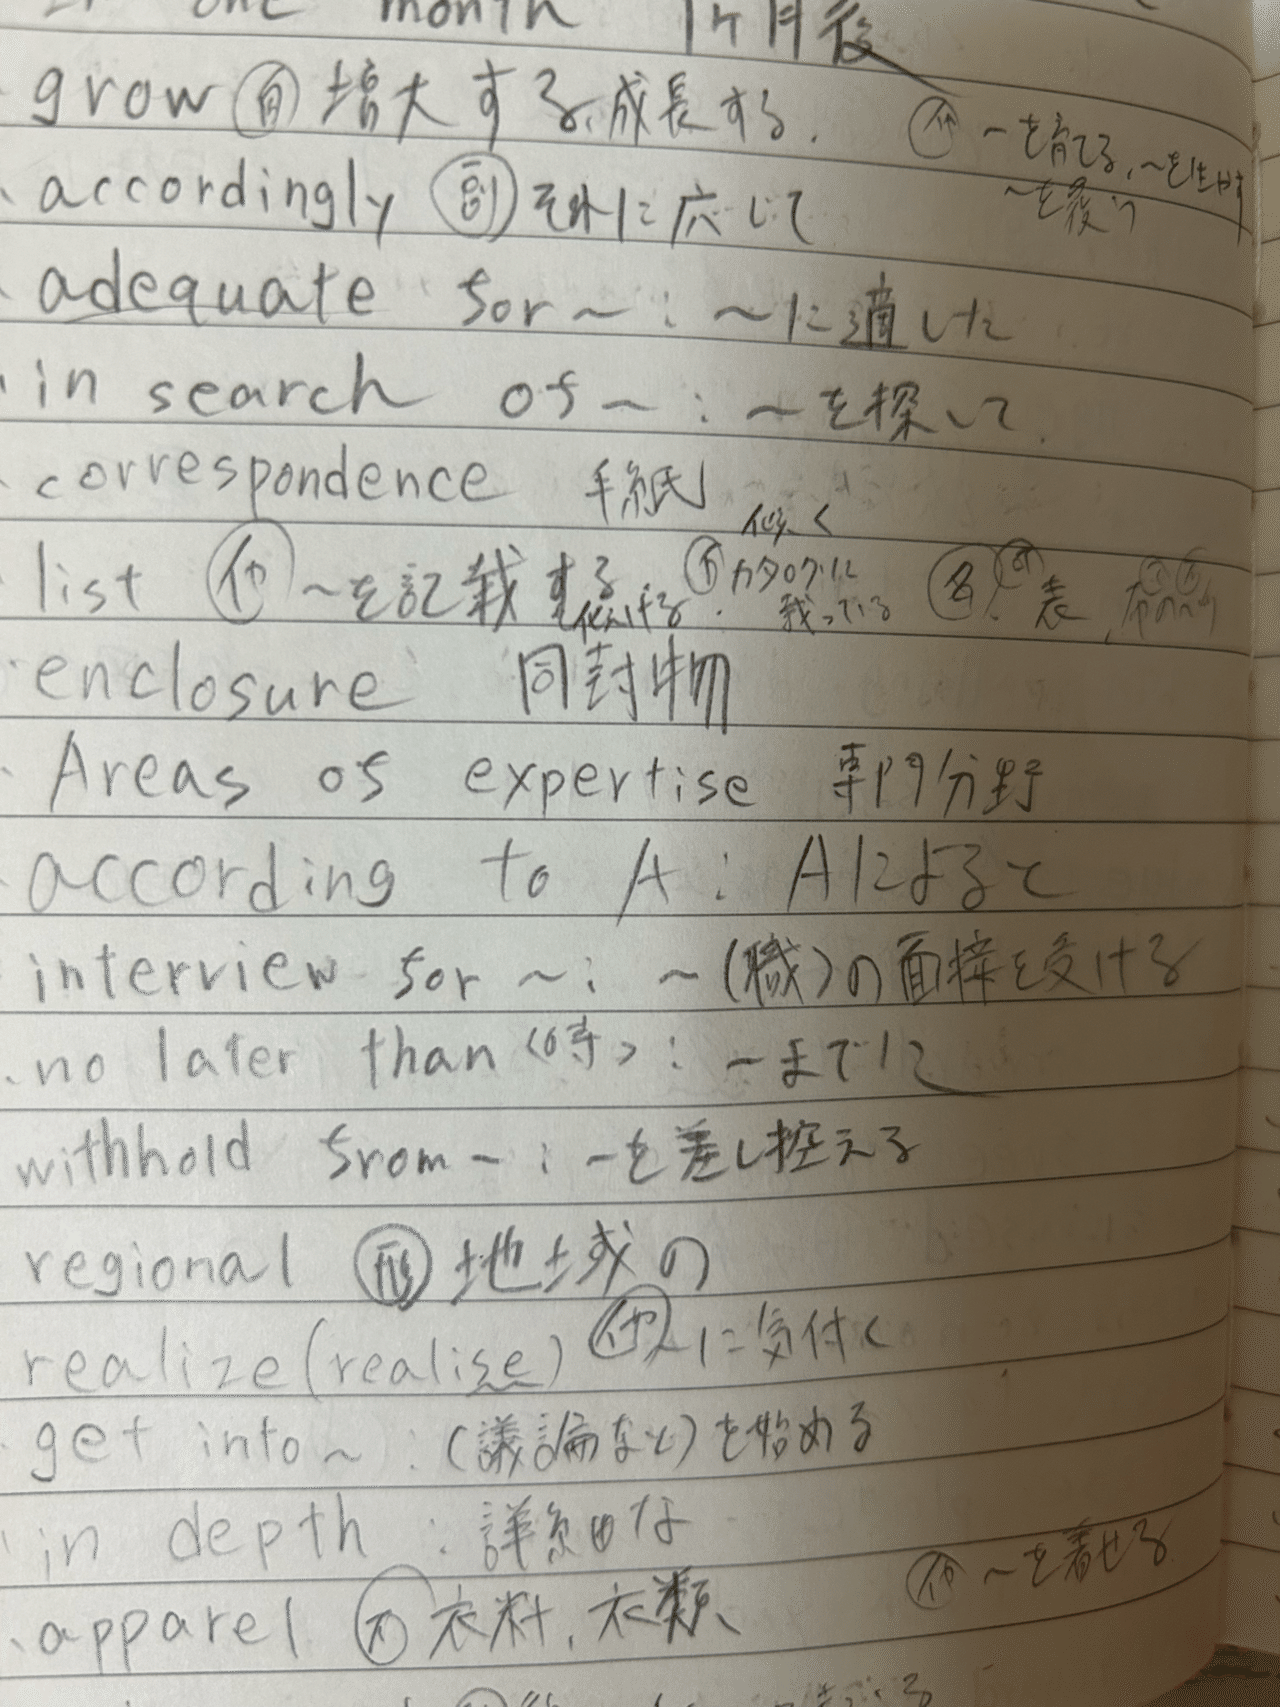 in one month 1ヶ月後
grow 自 増大する、成長する. 他 〜を育てる, 〜を生やす
〜を覆う
accordingly 副 それに応じて
adequate for〜: 〜に適した
in search of〜: 〜を探して.
correspondence 手紙
list 他 〜を記載する 自 カタログに載っている 名 表
傾く
傾ける
enclosure 同封物
Areas of expertise 専門分野
according to A: Aによると
interview for 〜: 〜(職)の面接を受ける
no later than〈時〉: 〜までに
withhold from〜: 〜を差し控える
regional 形 地域の
realize(realise) 他 〜に気付く
get into〜: (議論など)を始める
in depth: 詳細な
apparel 名 衣料, 衣類、 他 〜を着せる